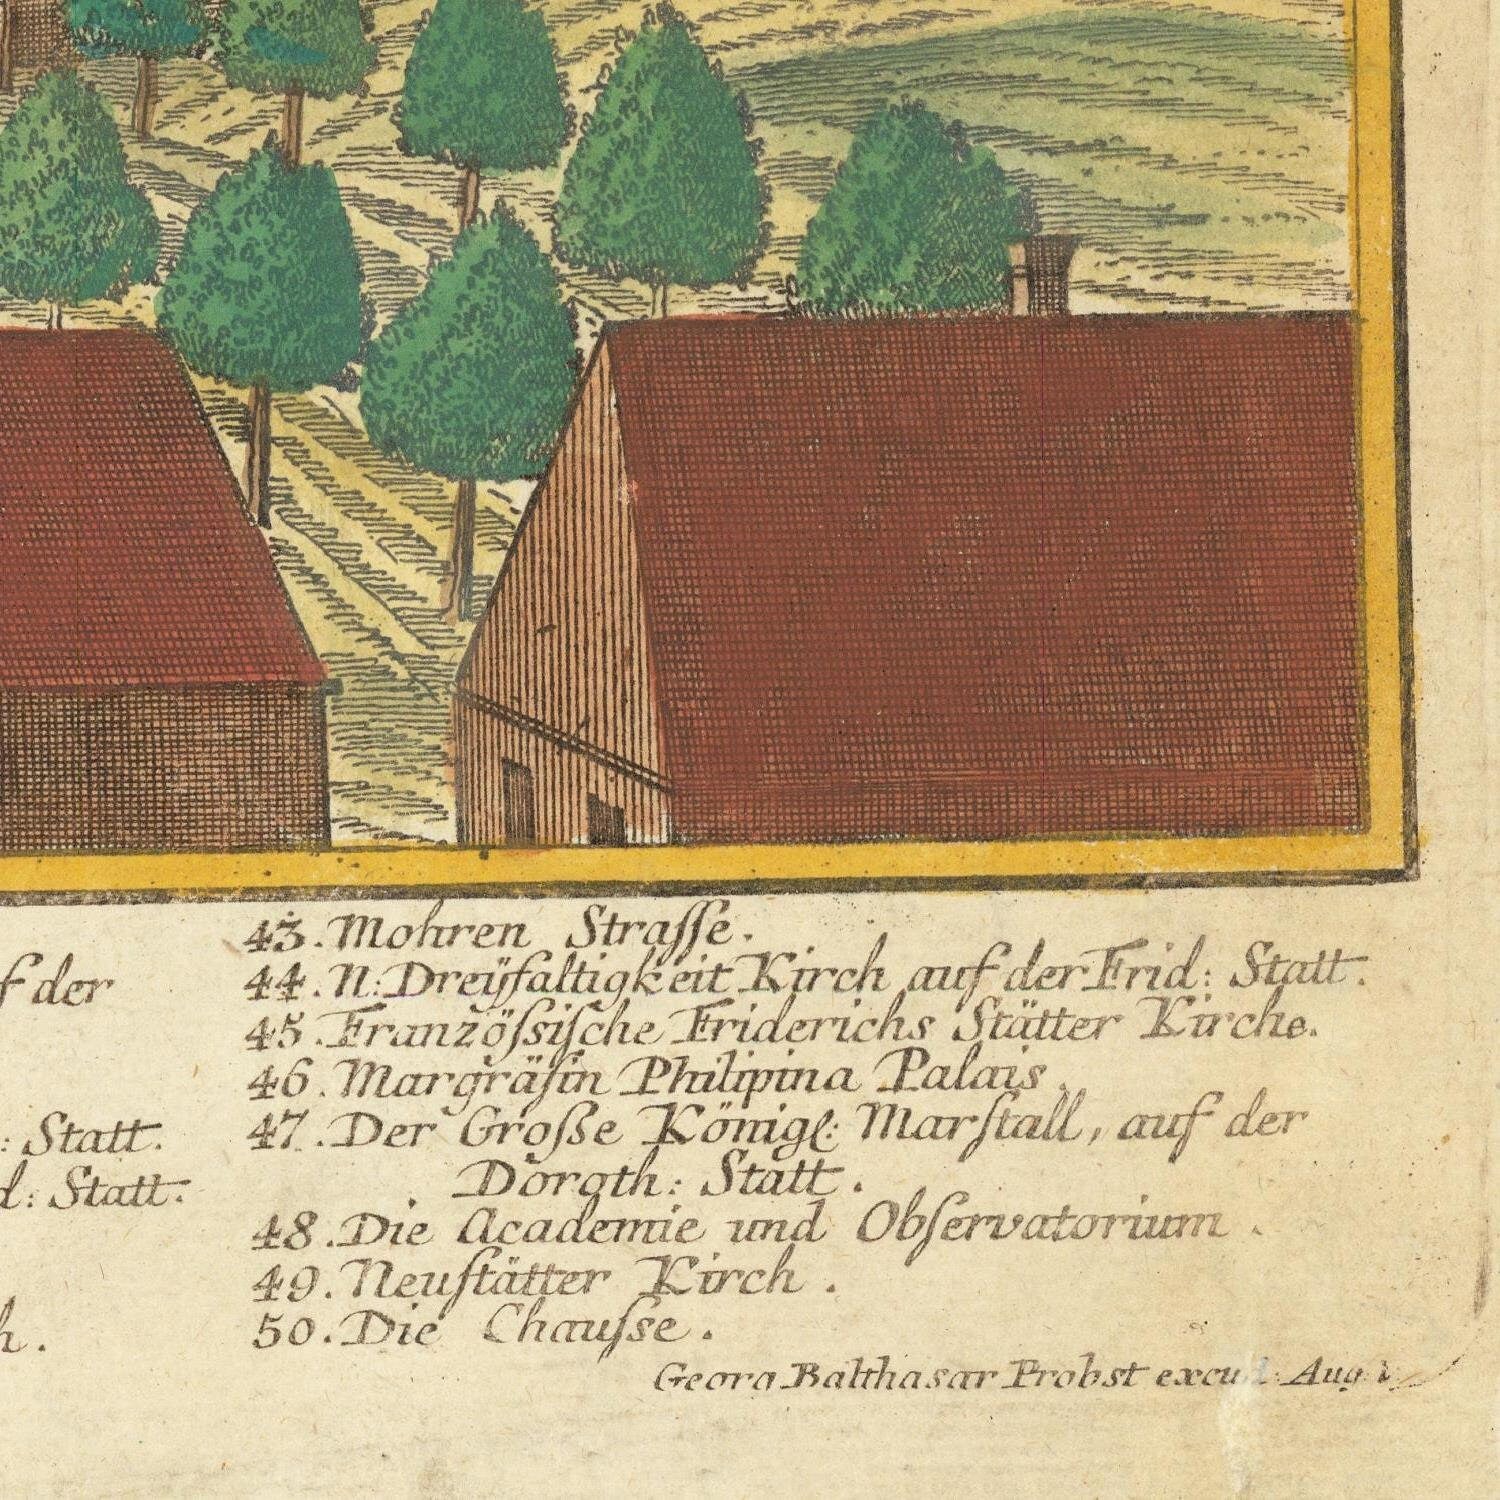 f der
: Statt.
d: Statt.
h.
43. Mohren Straſſe.
44. N: Dreÿfaltigkeit Kirch auf der Frid: Statt.
45. Französſiſche Friderichs Stätter Kirche.
46. Margräfin Philipina Palais.
47. Der Groſße Königl: Marſtall, auf der
Doroth: Statt.
48. Die Academie und Obſervatorium.
49. Neuſtätter Kirch.
50. Die Chauſse.
Georg Balthasar Probst excud. Aug. V.